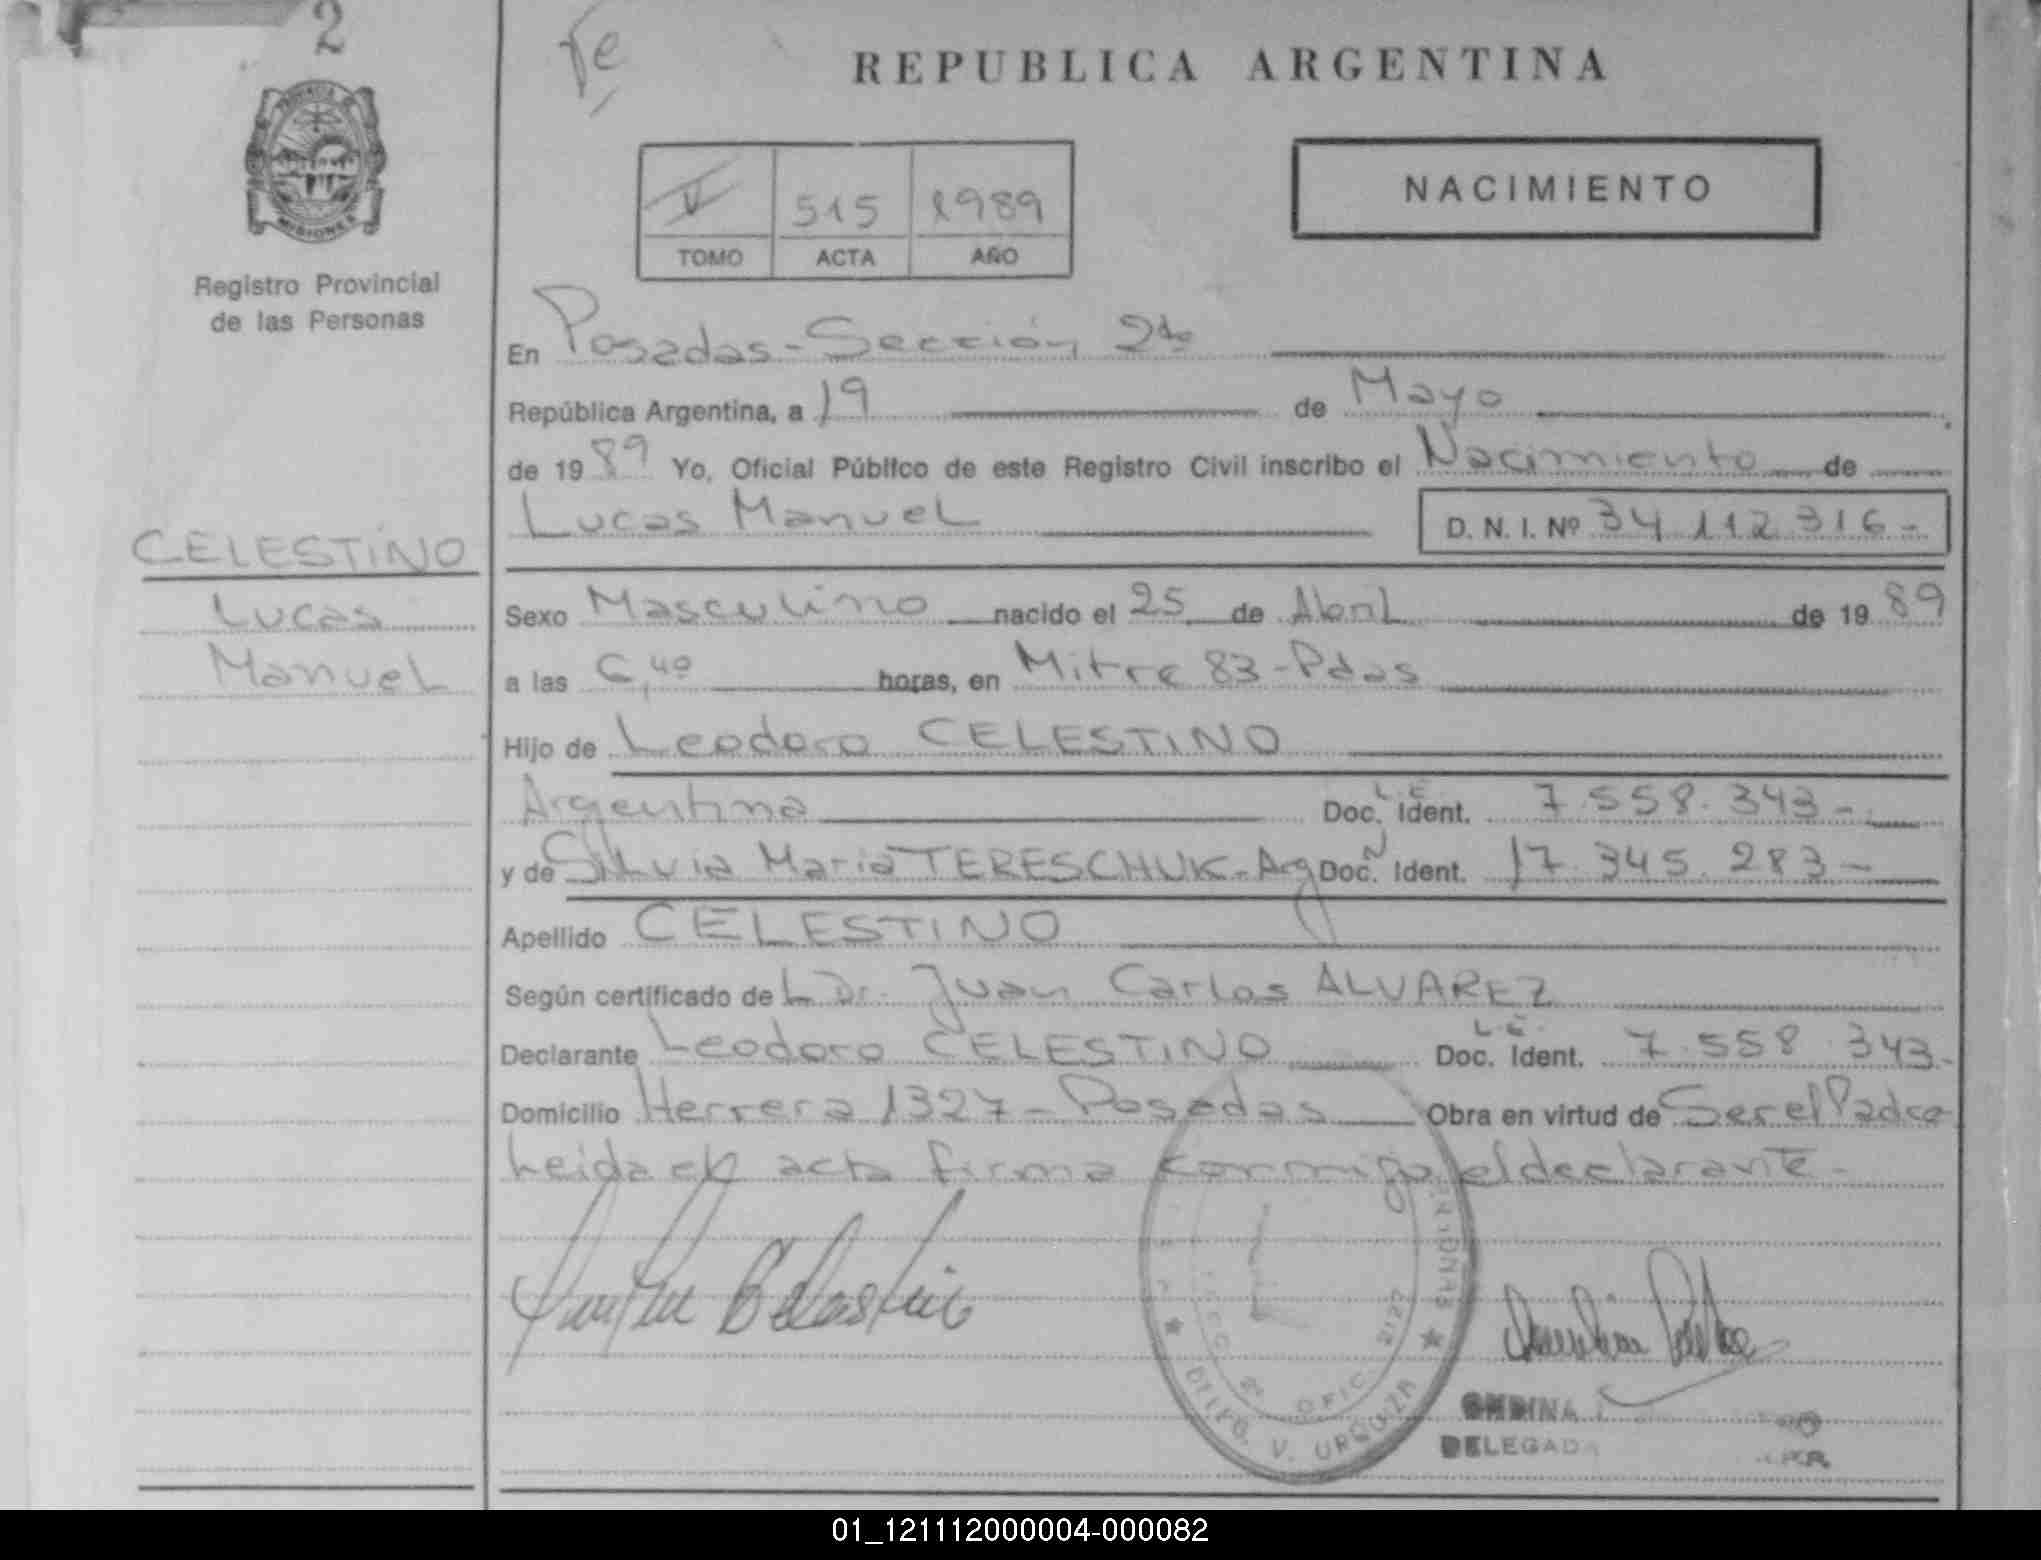 2
REPUBLICA ARGENTINA
PROVINCIA DE
MISIONES
Registro Provincial
de las Personas
V 515 1989
TOMO ACTA AÑO
NACIMIENTO
En Posadas - Sección 2da
República Argentina, a 19 de Mayo
de 1989 Yo, Oficial Público de este Registro Civil inscribo el Nacimiento de
Lucas Manuel D. N. I. Nº 34 112 316-
CELESTINO
Lucas
Manuel
Sexo Masculino nacido el 25 de Abril de 1989
a las 6,40 horas, en Mitre 83 - Pdas
Hijo de Leodoro CELESTINO
Argentina Doc. Ident. L.E. 7.558.343-
y de Silvia Maria TERESCHUK - Arg Doc. Ident. 17.345.283-
Apellido CELESTINO
Según certificado de L Dr. Juan Carlos ALVAREZ
Declarante Leodoro CELESTINO Doc. Ident. L.E. 7.558.343-
Domicilio Herrera 1327 - Posadas Obra en virtud de Ser el Padre
Leida el acta firma conmigo el declarante-
OFIC. 2127
V. URQUIZA
DELEGADA
01_121112000004-000082